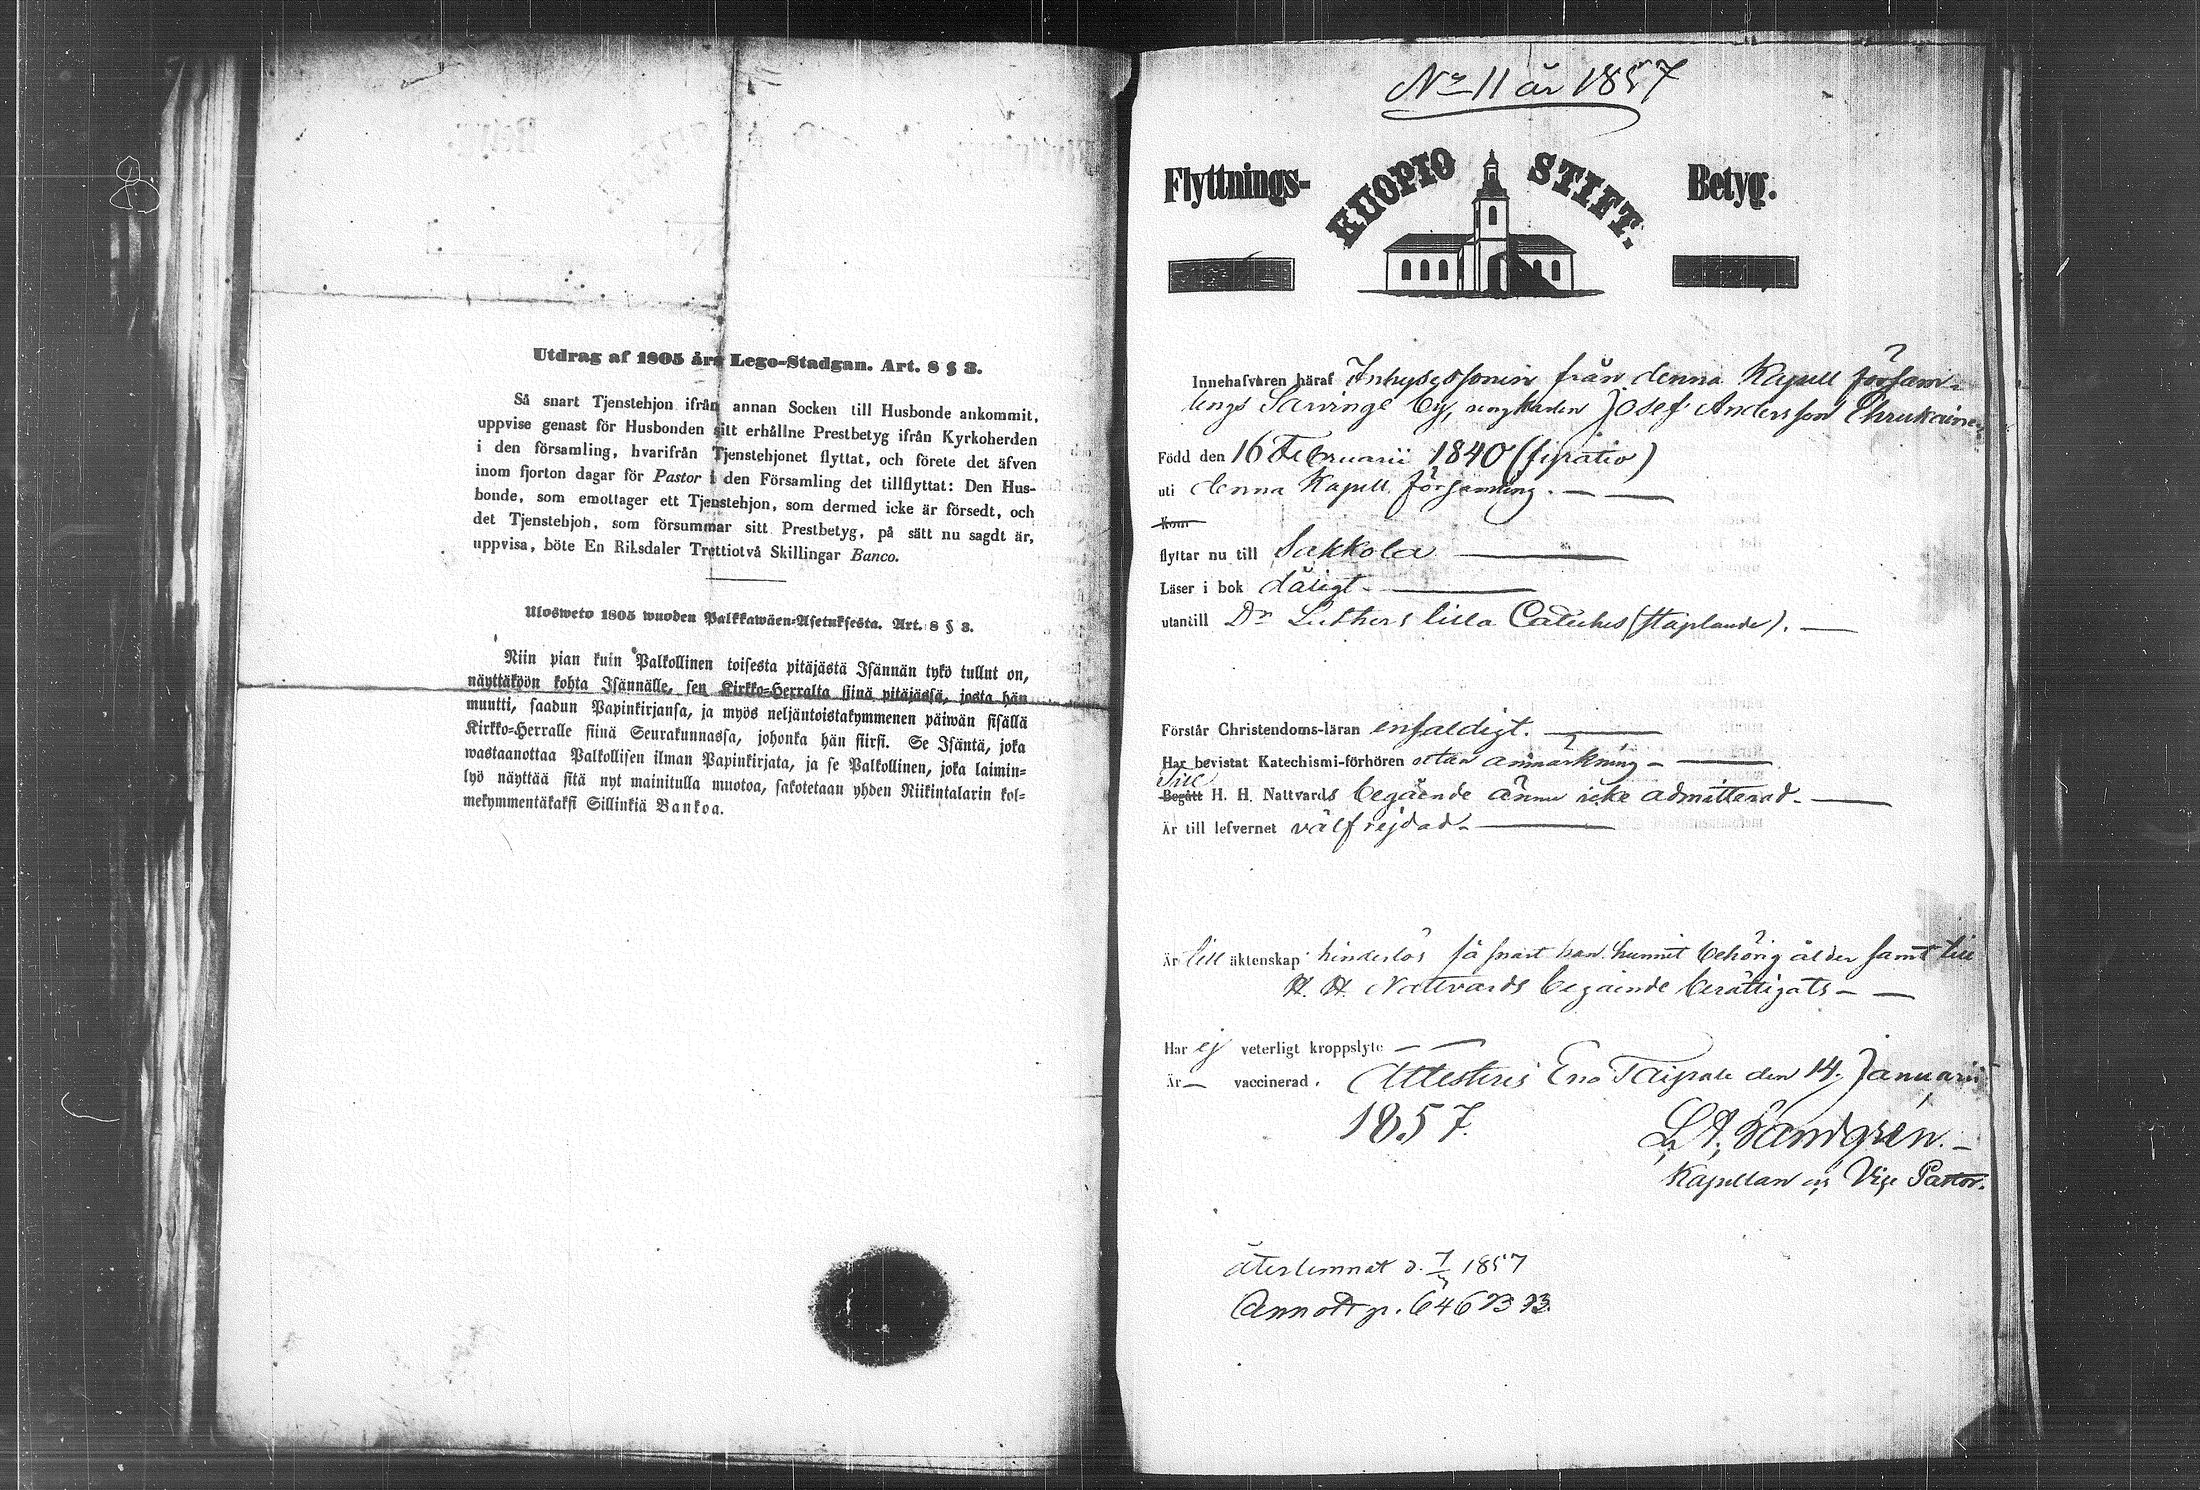 Utdrag af 1805 års Lego-Stadgan. Art. 8 § 3.
Så snart Tjenstehjon ifrån annan Socken till Husbonde ankommit,
uppvise genast för Husbonden sitt erhållne Prestbetyg ifrån Kyrkoherden
i den församling, hvarifrån Tjenstehjonet flyttat, och förete det äfven
inom fjorton dagar för Pastor i den Församling det tillflyttat: Den Hus-
bonde, som emottager ett Tjenstehjon, som dermed icke är försedt, och
det Tjenstehjon, som försummar sitt Prestbetyg, på sätt nu sagdt är,
uppvisa, böte En Riksdaler Trettiotvå Skillingar Banco.
Ulosweto 1805 wuoden Palkkawäen-Asetuksesta. Art. 8 § 3.
Niin pian kuin Palkollinen toisesta pitäjästä Isännän tykö tullut on,
näyttäköön kohta Isännälle, sen Kirkko-Herralta siinä pitäjässä, josta hän
muutti, saadun Papinkirjansa, ja myös neljäntoistakymmenen päiwän sisällä
Kirkko-Herralle siinä Seurakunnassa, johonka hän siirsi. Se Isäntä, joka
wastaanottaa Palkollisen ilman Papinkirjata, ja se Palkollinen, joka laimin-
lyö näyttää sitä nyt mainitulla muotoa, sakotetaan yhden Riikintalarin kol-
mekymmentäkaksi Sillinkiä Bankoa.
No 11 år 1857
Flyttnings- KUOPIO STIFT. Betyg.
Innehafvaren häraf Inhysessonen från denna Kapell församl-
lings Sarvinge by, ynglingen Josef Andersson
Född den 16 Februarii 1840 (fyratio)
uti denna Kapell församling. —
Kom
flyttar nu till Sakkola
Läser i bok dåligt.
utantill Dr Luthers lilla Catiches (staplande). —
Förstår Christendoms-läran enfaldigt.
Har bevistat Katechismi-förhören utan anmärkning —
Till
Begått H. H. Nattvards begående ännu icke admitterad. —
Är till lefvernet välfrejdad. —
Är till äktenskap hinderlös så snart han hunnit behörig ålder samt till
H. H. Nattvards begående berättigats —
Har ej veterligt kroppslyte —
Är — vaccinerad. Attesteris Eno Taipale den 14 Januarii
1857. L. A. Sandgrén. —
Kapellan och Vice Pastor.
Återlemnat d. 7/3 1857
Annot. p. 646